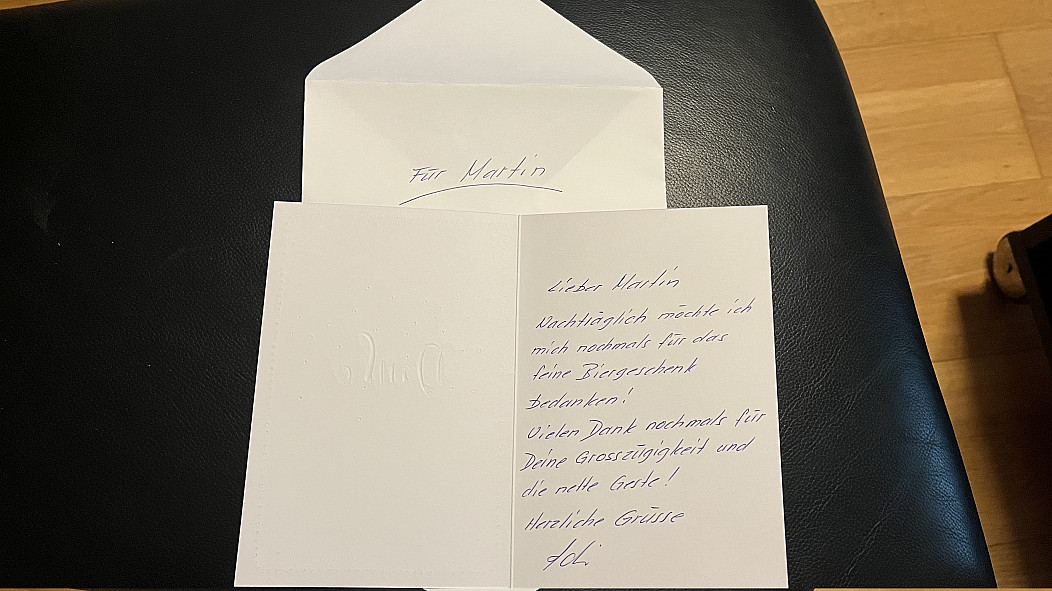 Für Martin
Lieber Martin
Nachträglich möchte ich
mich nochmals für das
feine Biergeschenk
bedanken!
Vielen Dank nochmals für
Deine Grosszügigkeit und
die nette Geste!
Herzliche Grüsse